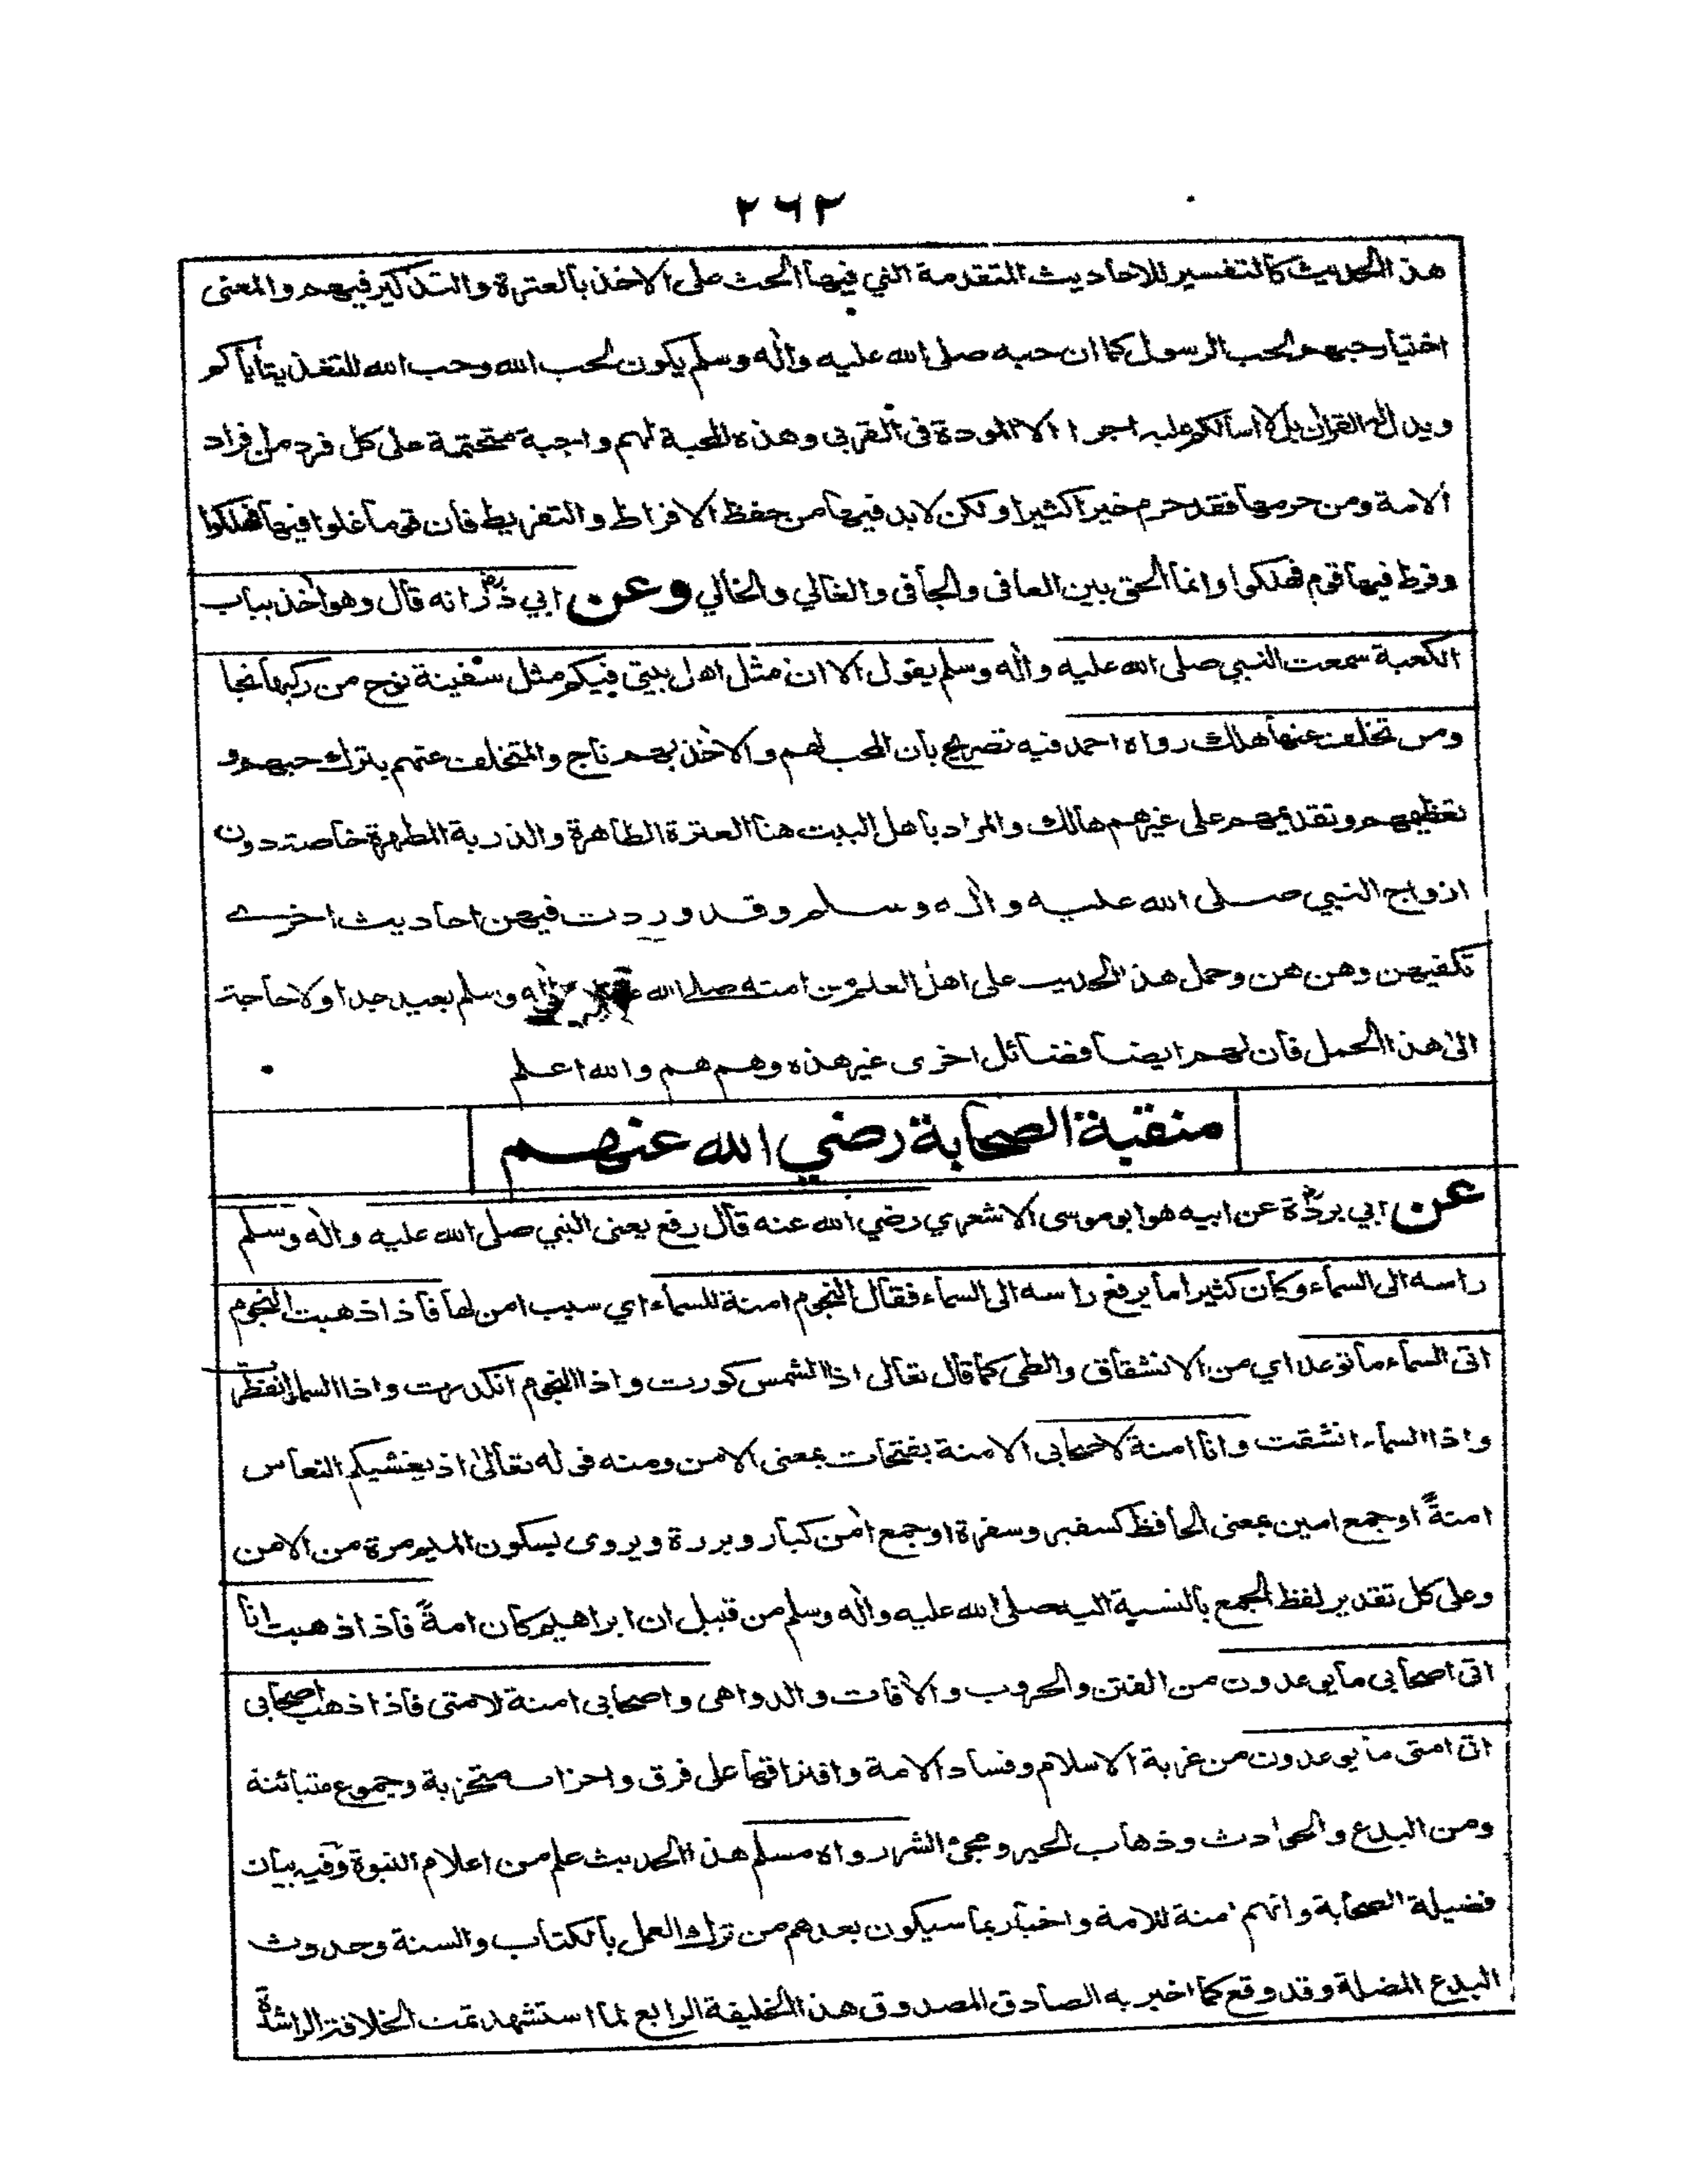 ٢٦٢
هذا الحديث كالتفسير للاحاديث المتقدمة التي فيها الحث على الاخذ بالعترة والتذكير فيهم والمعنى
اختيار حبهم لحب الرسول كما ان حبه صلى الله عليه واٰله وسلم يكون لحب الله وحب الله للتغذيته اياكم
ويدل له القراٰن بل لا اسألكم عليه اجرا الا المودة فى القربى وهذه المحبة لهم واجبة متحتمة على كل فرد من افراد
الامة ومن حرمها فقد حرم خيرا كثيرا ولكن لابد فيها من حفظ الافراط والتفريط فان قوما غلوا فيها فهلكوا
وفرط فيها قوم فهلكوا وانما الحق بين العافى والجافى والغالي والخالي وعن ابي ذرؓ انه قال وهو اٰخذ بباب
الكعبة سمعت النبي صلى الله عليه واٰله وسلم يقول الا ان مثل اهل بيتي فيكم مثل سفينة نوح من ركبها نجا
ومن تخلف عنها هلك رواه احمد فيه تصريح بأن المحب لهم والاٰخذ بهم ناج والمتخلف عنهم بترك حبهم و
تعظيمهم وتقديمهم على غيرهم هالك والمراد باهل البيت هنا العترة الطاهرة والذرية المطهرة خاصة دون
ازواج النبي صلى الله عليه واٰله وسلم وقد وردت فيهن احاديث اخرے
تكفيهن وهن هن وحمل هذا الحديث على اهل العلم من امته صلى الله عليه واٰله وسلم بعيد جدا ولا حاجة
الى هذا الحمل فان لهم ايضا فضائل اخرى غير هذه وهم هم والله اعلم
منقبة الصحابة رضي الله عنهم
عن ابي بردةؓ عن ابيه هو ابو موسى الاشعري رضي الله عنه قال رفع يعنى النبي صلى الله عليه واٰله وسلم
راسه الى السماء وكان كثيرا ما يرفع راسه الى السماء فقال النجوم امنة للسماء اي سبب امن لها فاذا ذهبت النجوم
اتى السماء ما توعد اي من الانشقاق والطى كما قال تعالى اذا الشمس كورت واذا النجوم انكدرت واذا السماء انفطرت
واذا السماء انشقت وانا امنة لاصحابى الامنة بفتحات بمعنى الامن ومنه قوله تعالى اذ يغشيكم النعاس
امنةً او جمع امين بمعنى الحافظ كسفير وسفرة او جمع اٰمن كبار وبررة ويروى بسكون الميم مرة من الامن
وعلى كل تقدير لفظ الجمع بالنسبة اليه صلى الله عليه واٰله وسلم من قبيل ان ابراهيم كان امةً فاذا ذهبت انا
اتى اصحابى ما يوعدون من الفتن والحروب والاٰفات والدواهى واصحابى امنة لامتى فاذا ذهب اصحابى
اتى امتى ما يوعدون من غربة الاسلام وفساد الامة وافتراقها على فرق واحزاب متحزبة وجموع متبائنة
ومن البدع والحوادث وذهاب الخير ومجئ الشر رواه مسلم هذا الحديث علم من اعلام النبوة وفيه بيان
فضيلة الصحابة وانهم امنة للامة واخبار بما سيكون بعدهم من ترك العمل بالكتاب والسنة وحدوث
البدع المضلة وقد وقع كما اخبر به الصادق المصدوق هذا الخليفة الرابع لما استشهد تمت الخلافة الراشدة